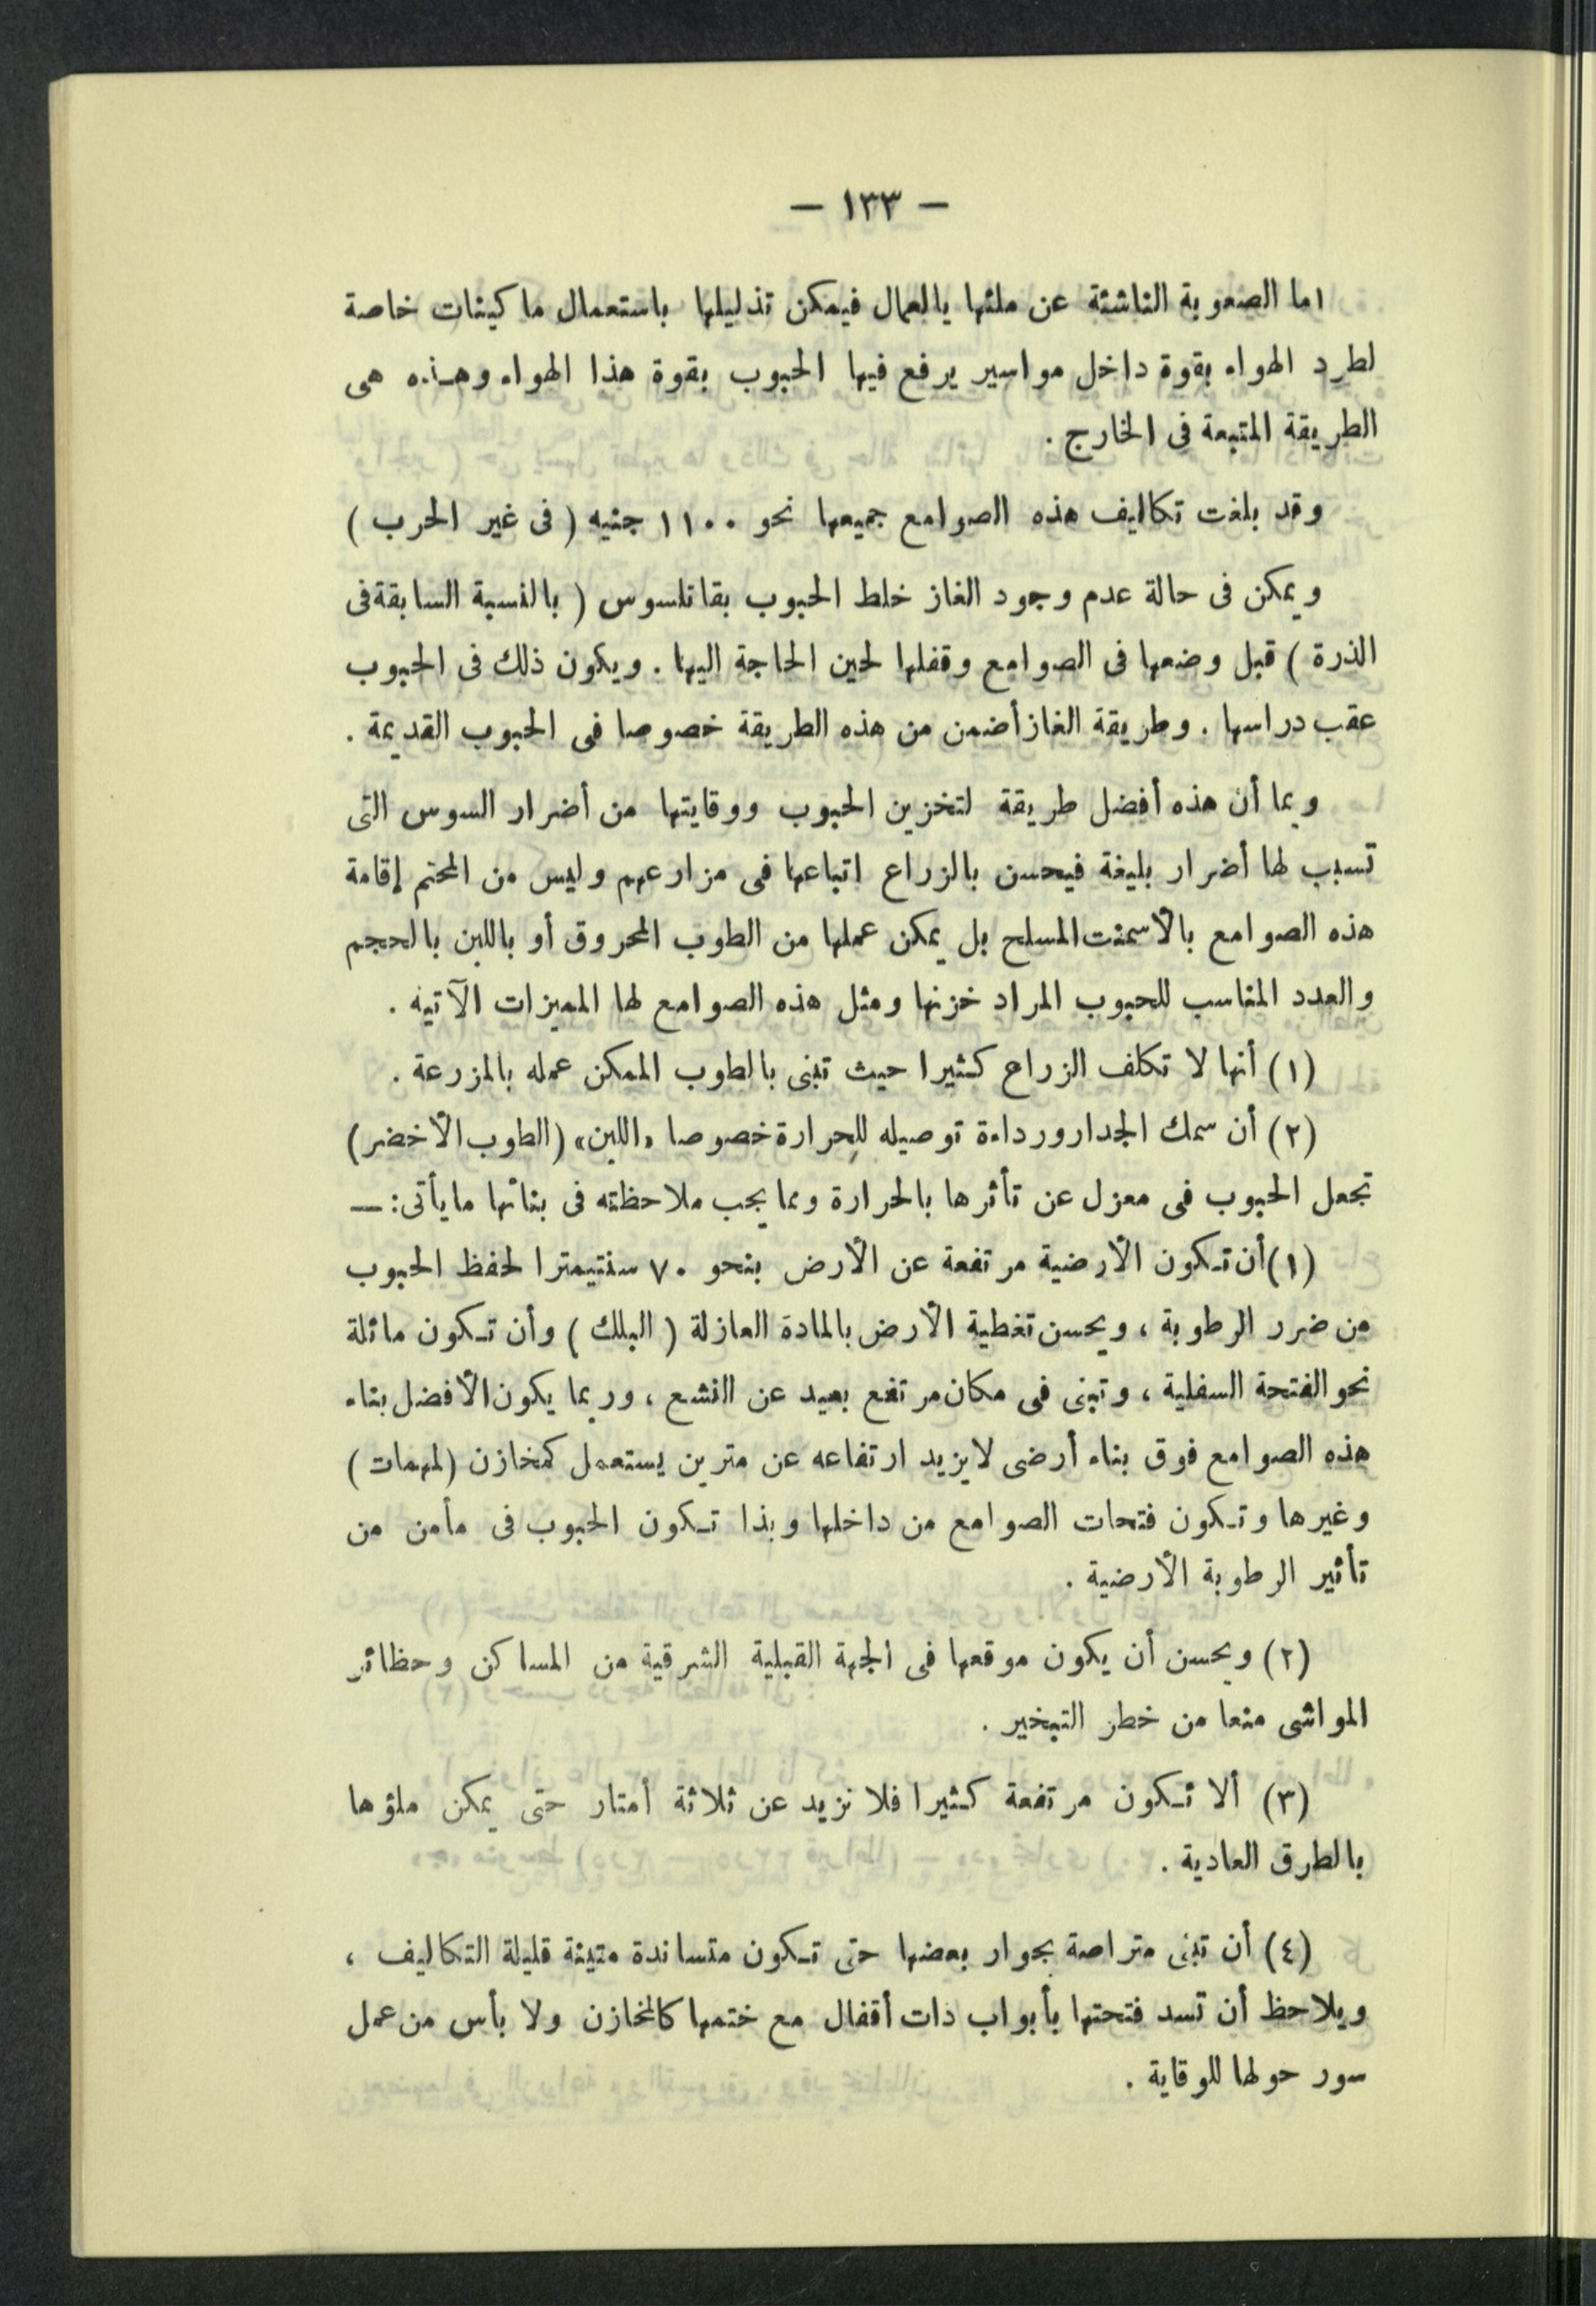 — ١٣٣ —
اما الصعوبة الناشئة عن ملئها بالعمال فيمكن تذليلها باستعمال ماكينات خاصة
لطرد الهواء بقوة داخل مواسير يرفع فيها الحبوب بقوة هذا الهواء وهذه هى
الطريقة المتبعة فى الخارج .
وقد بلغت تكاليف هذه الصوامع جميعها نحو ١١٠٠ جنيه ( فى غير الحرب )
ويمكن فى حالة عدم وجود الغاز خلط الحبوب بقاتلسوس ( بالنسبة السابقة فى
الذرة ) قبل وضعها فى الصوامع وقفلها لحين الحاجة اليها . ويكون ذلك فى الحبوب
عقب دراسها . وطريقة الغاز أضمن من هذه الطريقة خصوصا فى الحبوب القديمة .
وبما أن هذه أفضل طريقة لتخزين الحبوب ووقايتها من أضرار السوس التى
تسبب لها أضرار بليغة فيحسن بالزراع اتباعها فى مزارعهم وليس من المحتم إقامة
هذه الصوامع بالأسمنت المسلح بل يمكن عملها من الطوب المحروق أو باللبن بالحجم
والعدد المناسب للحبوب المراد خزنها ومثل هذه الصوامع لها المميزات الآتيه .
(١) أنها لا تكلف الزراع كثيرا حيث تبنى بالطوب الممكن عمله بالمزرعة .
(٢) أن سمك الجدار ورداءة توصيله للحرارة خصوصا «اللبن» (الطوب الأخضر)
تجعل الحبوب فى معزل عن تأثرها بالحرارة ومما يجب ملاحظته فى بنائها ما يأتى : —
(١) أن تكون الأرضية مرتفعة عن الأرض بنحو ٧٠ سنتيمترا لحفظ الحبوب
من ضرر الرطوبة ، ويحسن تغطية الأرض بالمادة العازلة ( البلك ) وأن تكون مائلة
نحو الفتحة السفلية ، وتبنى فى مكان مرتفع بعيد عن النشع ، وربما يكون الأفضل بناء
هذه الصوامع فوق بناء أرضى لا يزيد ارتفاعه عن مترين يستعمل كمخازن (لمهمات)
وغيرها وتكون فتحات الصوامع من داخلها وبذا تكون الحبوب فى مأمن من
تأثير الرطوبة الأرضية .
(٢) ويحسن أن يكون موقعها فى الجهة القبلية الشرقية من المساكن وحظائر
المواشى منعا من خطر التبخير .
(٣) ألا تكون مرتفعة كثيرا فلا نزيد عن ثلاثة أمتار حتى يمكن ملؤها
بالطرق العادية .
(٤) أن تبنى متراصة بجوار بعضها حتى تكون متساندة متينة قليلة التكاليف ،
ويلاحظ أن تسد فتحتها بأبواب ذات أقفال مع ختمها كالمخازن ولا بأس من عمل
سور حولها للوقاية .